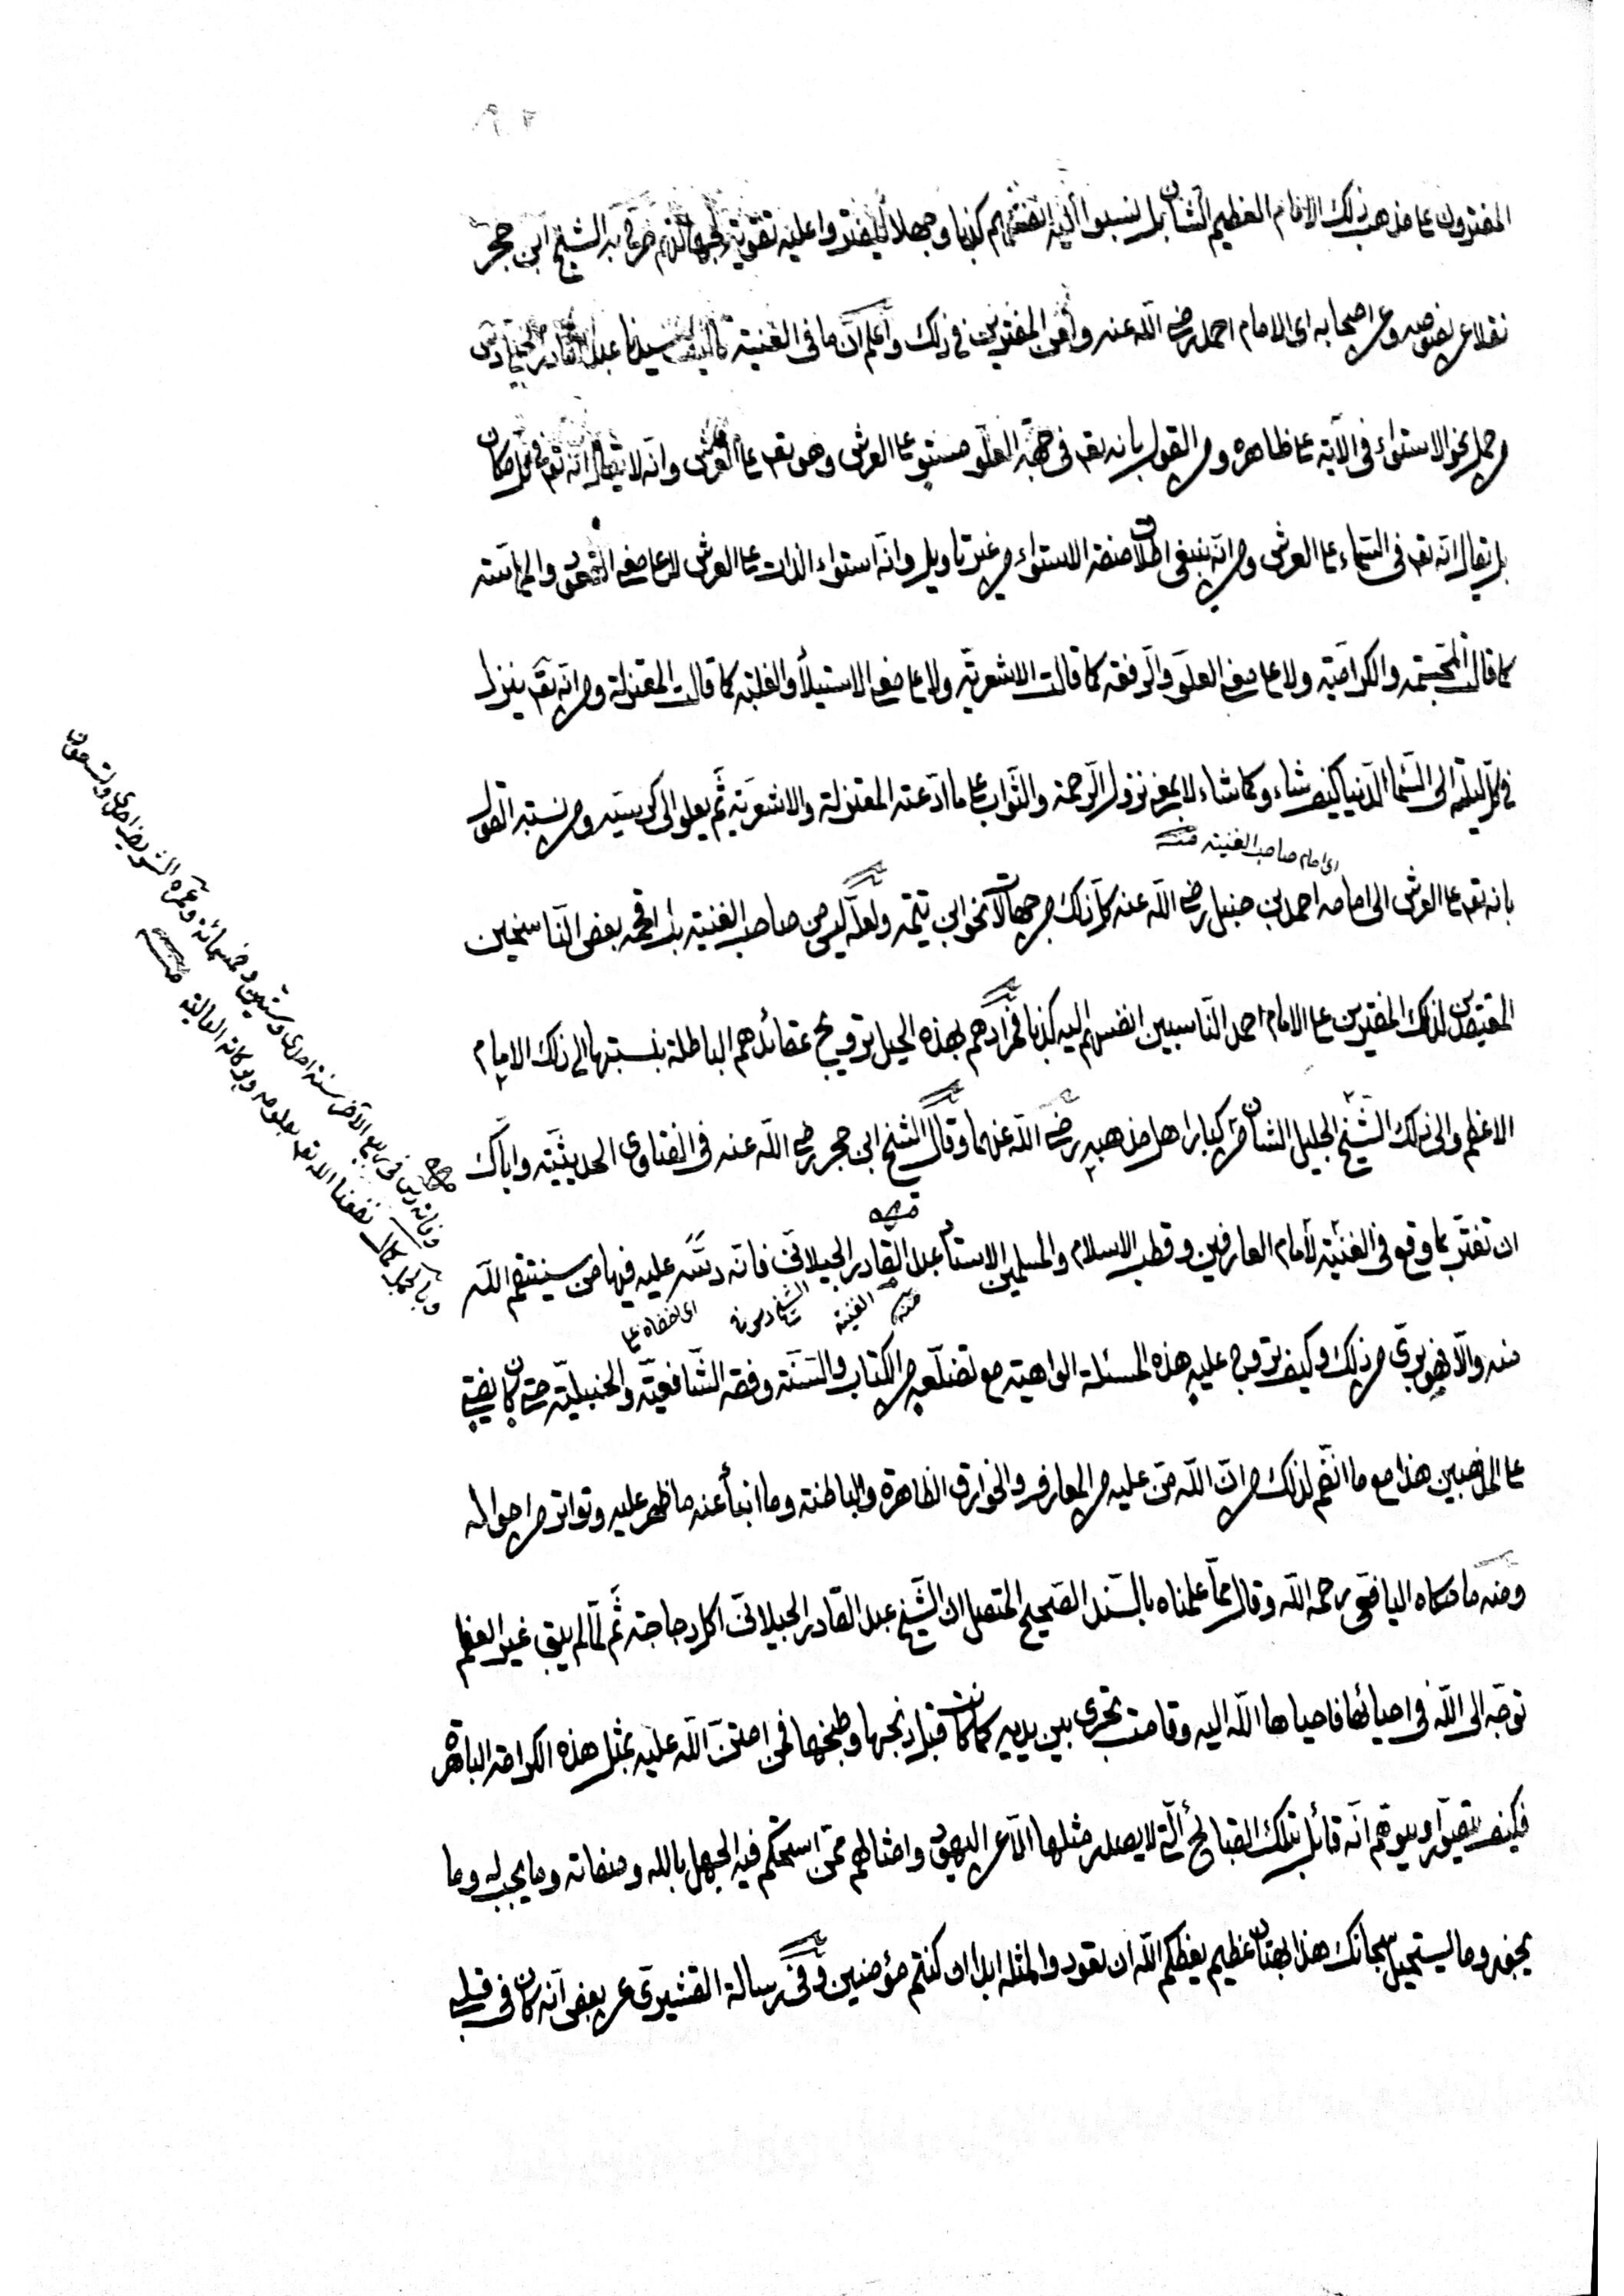 المفترون عا مذهب ذلك الامام العظيم الشان بل نسبوا اليه انفسهم كذبا وجهلا ليفتروا عليه تقوية لجهالتهم صرح به الشيخ ابن حجر
نقلا عن نصوصه وعن اصحابه اى الامام احمد رضى الله عنه ولعن المفترين فى ذلك واعلم ان ما فى الغنية تاليف سيدنا عبد القادر الجيلى
من حمل نحو الاستواء فى الآية عا ظاهره ومن القول بانه تع فى جهة العلو مستو عا العرش وهو تع عا العرش وانه لا يقال انه تع فى كل مكان
بل يقال انه تع فى السماء عا العرش ومن انه ينبغى اطلاق صفة الاستواء من غير تاويل وانه استواء الذات عا العرش لا عا معنى القعود والمماسة
كما قالت المجسمة والكرامية ولا عا معنى العلو والرفعة كما قالت الاشعرية ولا عا معنى الاستيلأ والغلبة كما قالت المعتزلة ومن انه تع ينزل
فى كل ليلة الى السما الدنيا كيف شاء وكما شاء لا بمعنى نزول الرحمة والثواب عا ما ادعته المعتزلة والاشعرية ثم يعلو الى كرسيه ومن نسبة القول
اى امام صاحب الغنية منه
بانه تع عا العرش الى امامه احمد بن حنبل رضى الله عنه كل ذلك من جهالات نحو ابن تيمية ولعله ليس من صاحب الغنية بل اقحمه بعض الناسخين
المقتصين لذلك المفترين عا الامام احمد الناسبين انفسهم اليه كذبا فمرادهم بهذه الحيل ترويج عقائدهم الباطلة بنسبتها الى ذلك الامام
الاعظم والى ذلك الشيخ الجليل الشان من كبار اهل مذهبه رضى الله عنهما وقال الشيخ ابن حجر رضى الله عنه فى الفتاوى الحديثية واياك
ان تغتر بما وقع فى الغنية لامام العارفين وقطب الاسلام والمسلمين الاستاذ عبد القادر الجيلانى فانه دسه عليه فيها من سينتقم الله
الغنية
اى اخفاه عا
منه والا فهو برى من ذلك وكيف تروج عليه هذه المسئلة الواهية مع تضلعه من الكتاب والسنة وفقه الشافعية والحنبلية حتى كان يفتى
عا المذهبين هذا مع ما انضم لذلك من ان الله من عليه من المعارف والخوارق الظاهرة والباطنة وما انبأ عنه ما ظهر عليه وتواتر من احواله
ومنه ما حكاه اليافعى رحمه الله وقال مما علمناه بالسند الصحيح المتصل ان الشيخ عبد القادر الجيلانى اكل دجاجة ثم لما لم يبق غير العظم
توجه الى الله فى احيائها فاحياها الله اليه وقامت تجرى بين يديه كما كانت قبل ذبحها وطبخها فمن امتن الله عليه بمثل هذه الكرامة الباهرة
فكيف يتصور او يتوهم انه قائل بتلك القبائح التى لا يصدر مثلها الا عن اليهود وامثالهم ممن استحكم فيه الجهل بالله وصفاته وما يجب له وما
يجوز وما يستحيل سبحانك هذا بهتان عظيم يعظكم الله ان تعودوا لمثله ابدا ان كنتم مؤمنين وفى رسالة القشيرى عن بعض انه كان فى قلبه
وفاته رض فى ربيع الآخر سنة احدى وستين وخمسمائة وعمره الشريف احدى وتسعون
وبالجملة نفعنا الله تع بعلومه وبركاته العالية منه